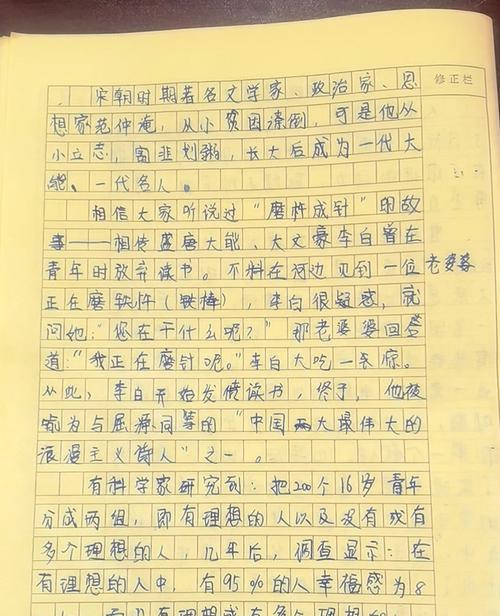 修正栏
宋朝时期著名文学家、政治家、思
想家范仲淹，从小贫困潦倒，可是他从
小立志，断齑划粥，长大后成为一代大
能、一代名人。
相信大家听说过“磨杵成针”的故
事——相传盛唐大能、大文豪李白曾在
青年时放弃读书。不料在河边见到一位老婆婆
正在磨铁杵（铁棒），李白很疑惑，就
问她：“您在干什么呢？”那老婆婆回答
道：“我正在磨针呢。”李白大吃一惊。
从此，李白开始发愤读书，终于，他被
喻为与屈原同等的“中国两大最伟大的
浪漫主义诗人”之一。
有科学家研究到：把200个16岁青年
分成两组，即有理想的人以及没有或有
多个理想的人，几年后，调查显示：在
有理想的人中，有95%的人幸福感为8